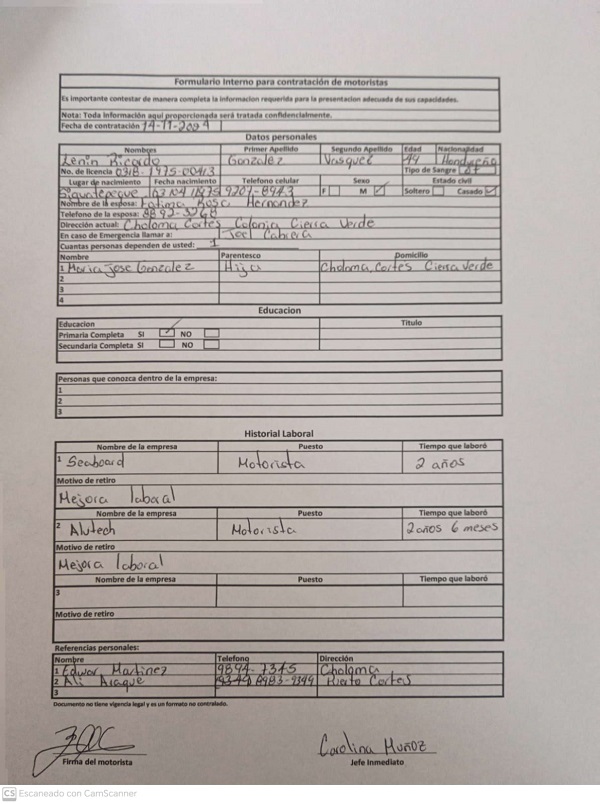 Formulario Interno para contratación de motoristas
Es importante contestar de manera completa la informacion requerida para la presentacion adecuada de sus capacidades.
Nota: Toda información aqui proporcionada será tratada confidencialmente.
Fecha de contratación 14-11-2021
Datos personales
Nombres Primer Apellido Segundo Apellido Edad Nacionalidad
Lenin Ricardo Gonzalez Vasquez 44 Hondureño
No. de licencia 0318-1975-00413 Tipo de Sangre
Lugar de nacimiento Fecha nacimiento Telefono celular Sexo Estado civil
Siguatepeque 9201-8943 F M Soltero Casado
Nombre de la esposa: Fatima Rosa Hernandez
Telefono de la esposa: 8892-3268
Dirección actual: Choloma Cortes Colonia Cierra Verde
En caso de Emergencia llamar a: Joel Cabrera
Cuantas personas dependen de usted: 1
Nombre Parentesco Domicilio
1 Maria Jose Gonzalez Hija Choloma, Cortes Cierra Verde
2
3
4
Educacion
Educacion Titulo
Primaria Completa SI NO
Secundaria Completa SI NO
Personas que conozca dentro de la empresa:
1
2
3
Historial Laboral
Nombre de la empresa Puesto Tiempo que laboró
1 Seaboard Motorista 2 años
Motivo de retiro
Mejora laboral
Nombre de la empresa Puesto Tiempo que laboró
2 Alutech Motorista 2 años 6 meses
Motivo de retiro
Mejora laboral
Nombre de la empresa Puesto Tiempo que laboró
3
Motivo de retiro
Referencias personales:
Nombre Telefono Dirección
1 Edwar Martinez 9894-7345 Choloma
2 Ali Araque 8983-9399 Puerto Cortes
3
Documento no tiene vigencia legal y es un formato no controlado.
Carolina Muñoz
Firma del motorista Jefe Inmediato
CS Escaneado con CamScanner